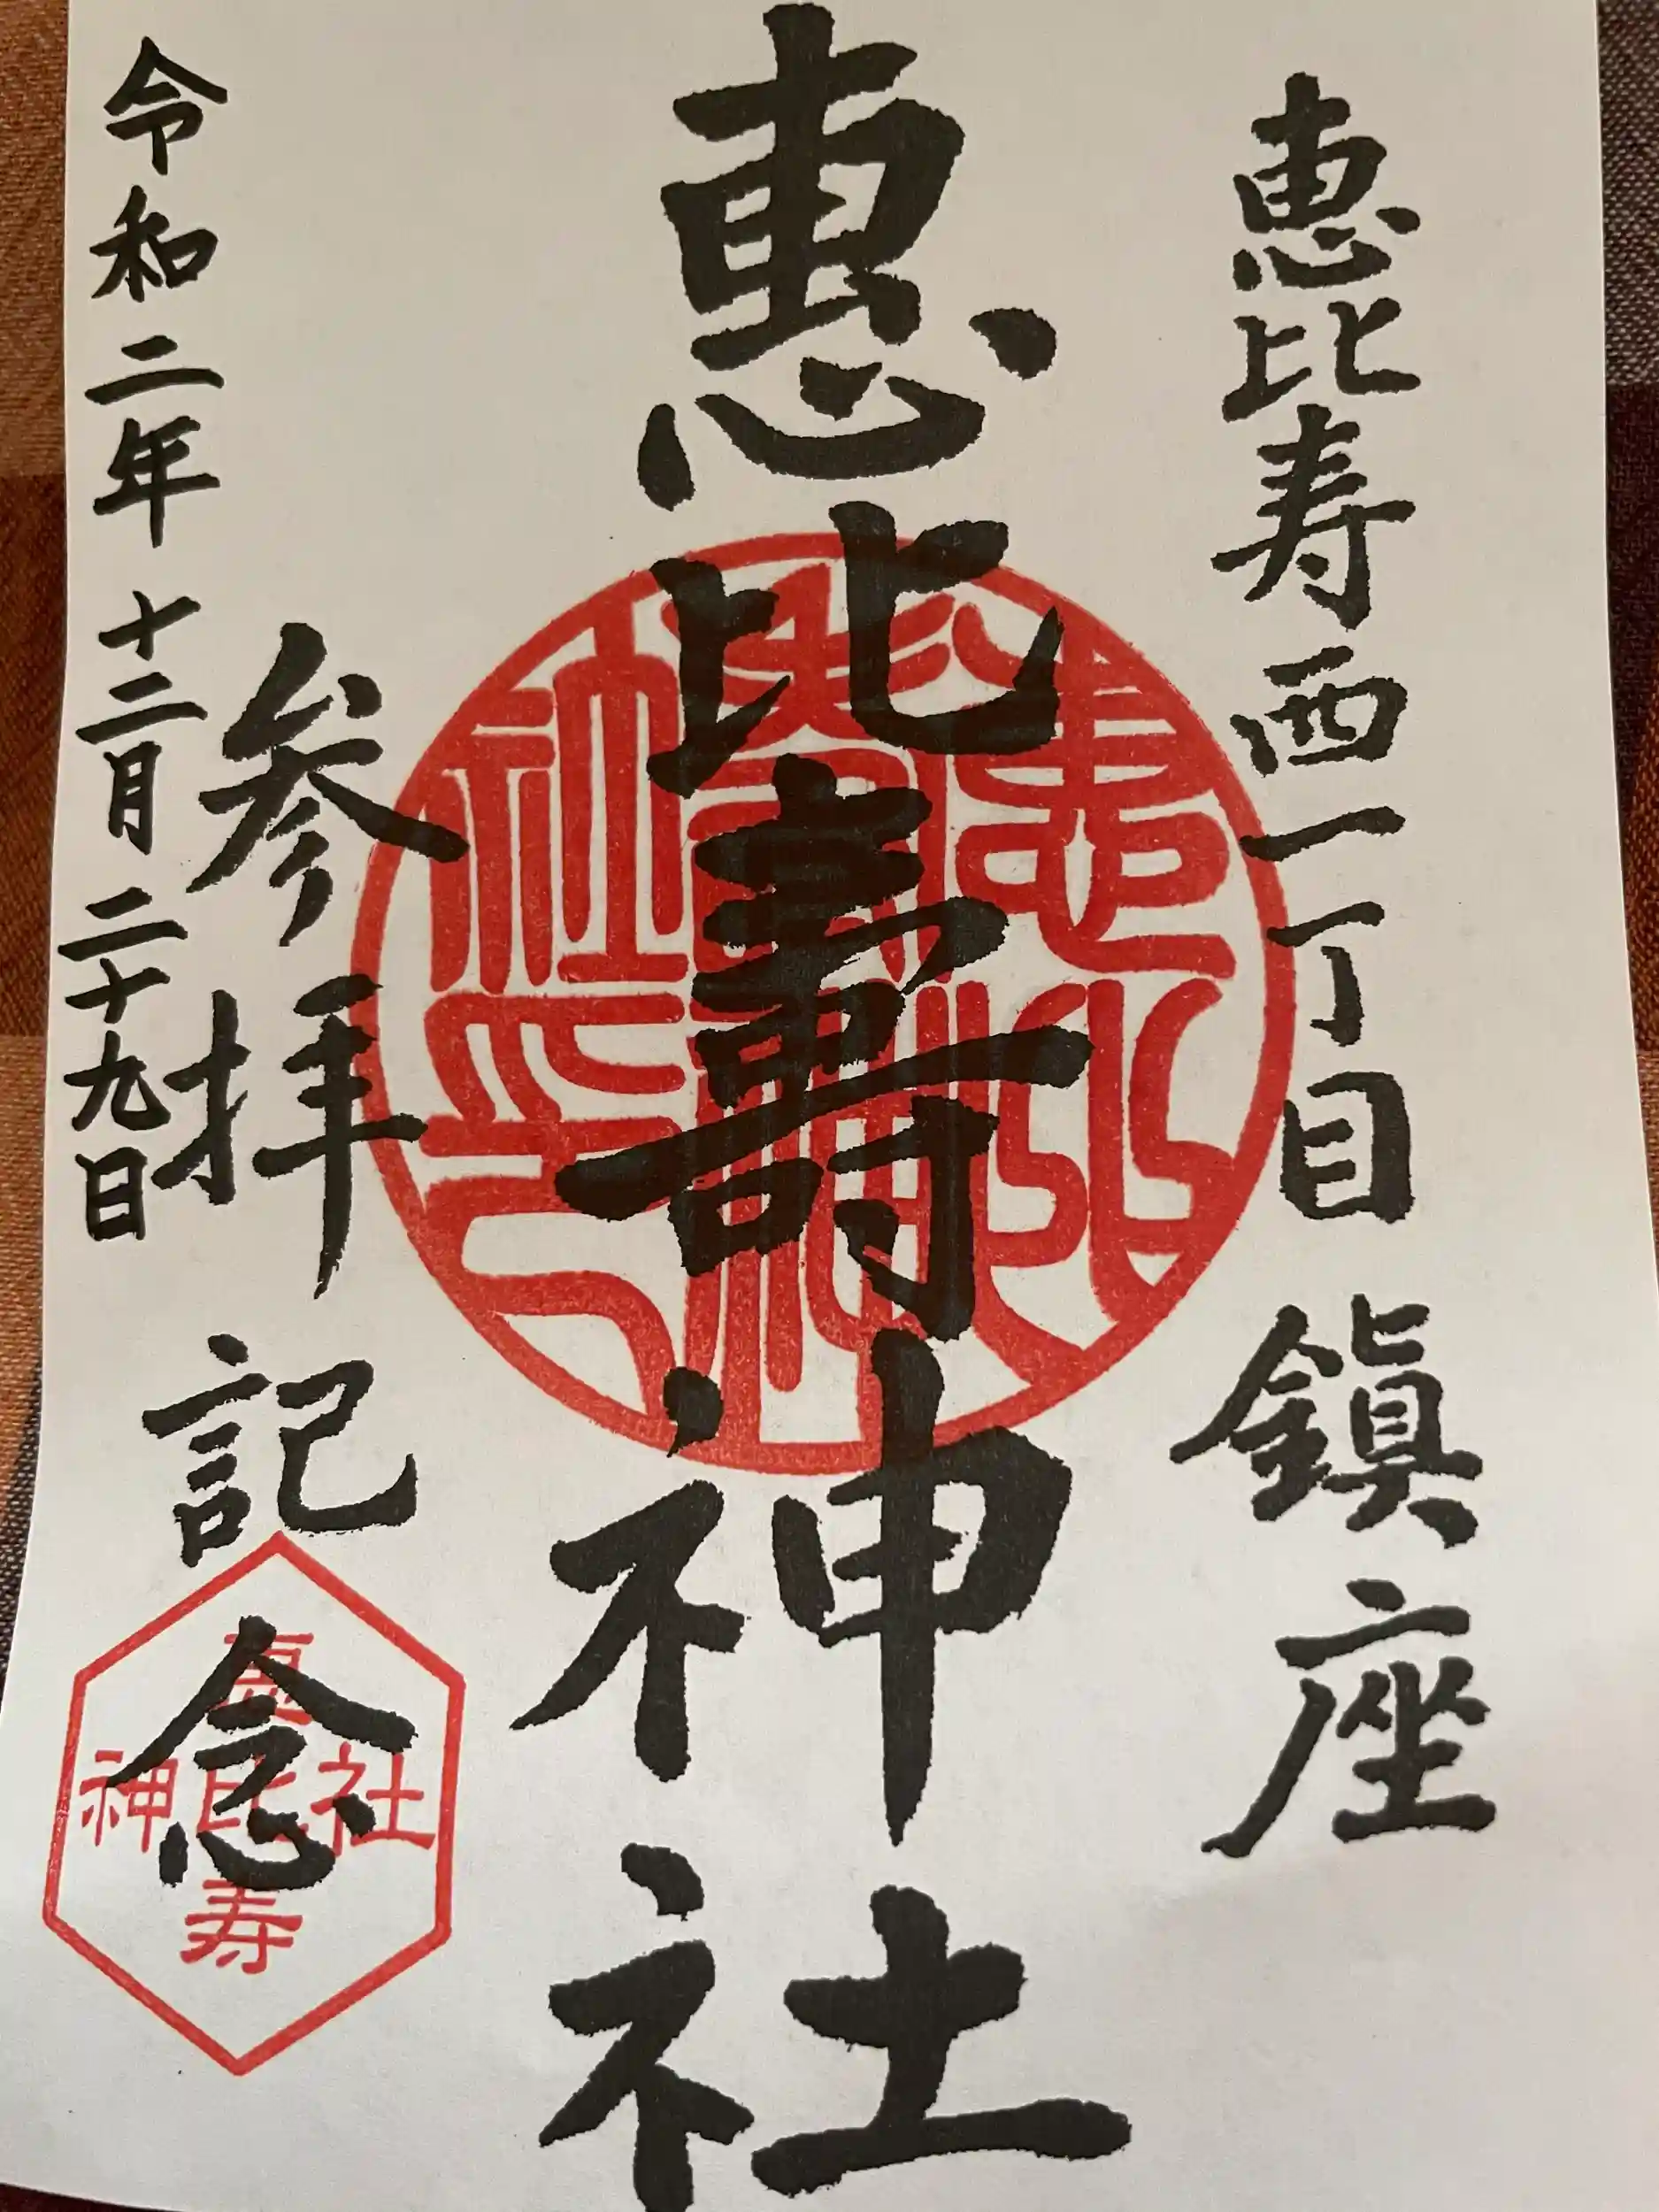 恵比寿西一丁目 鎮座
恵比壽神社
参拝記念
令和二年十二月二十九日
恵比寿
神社